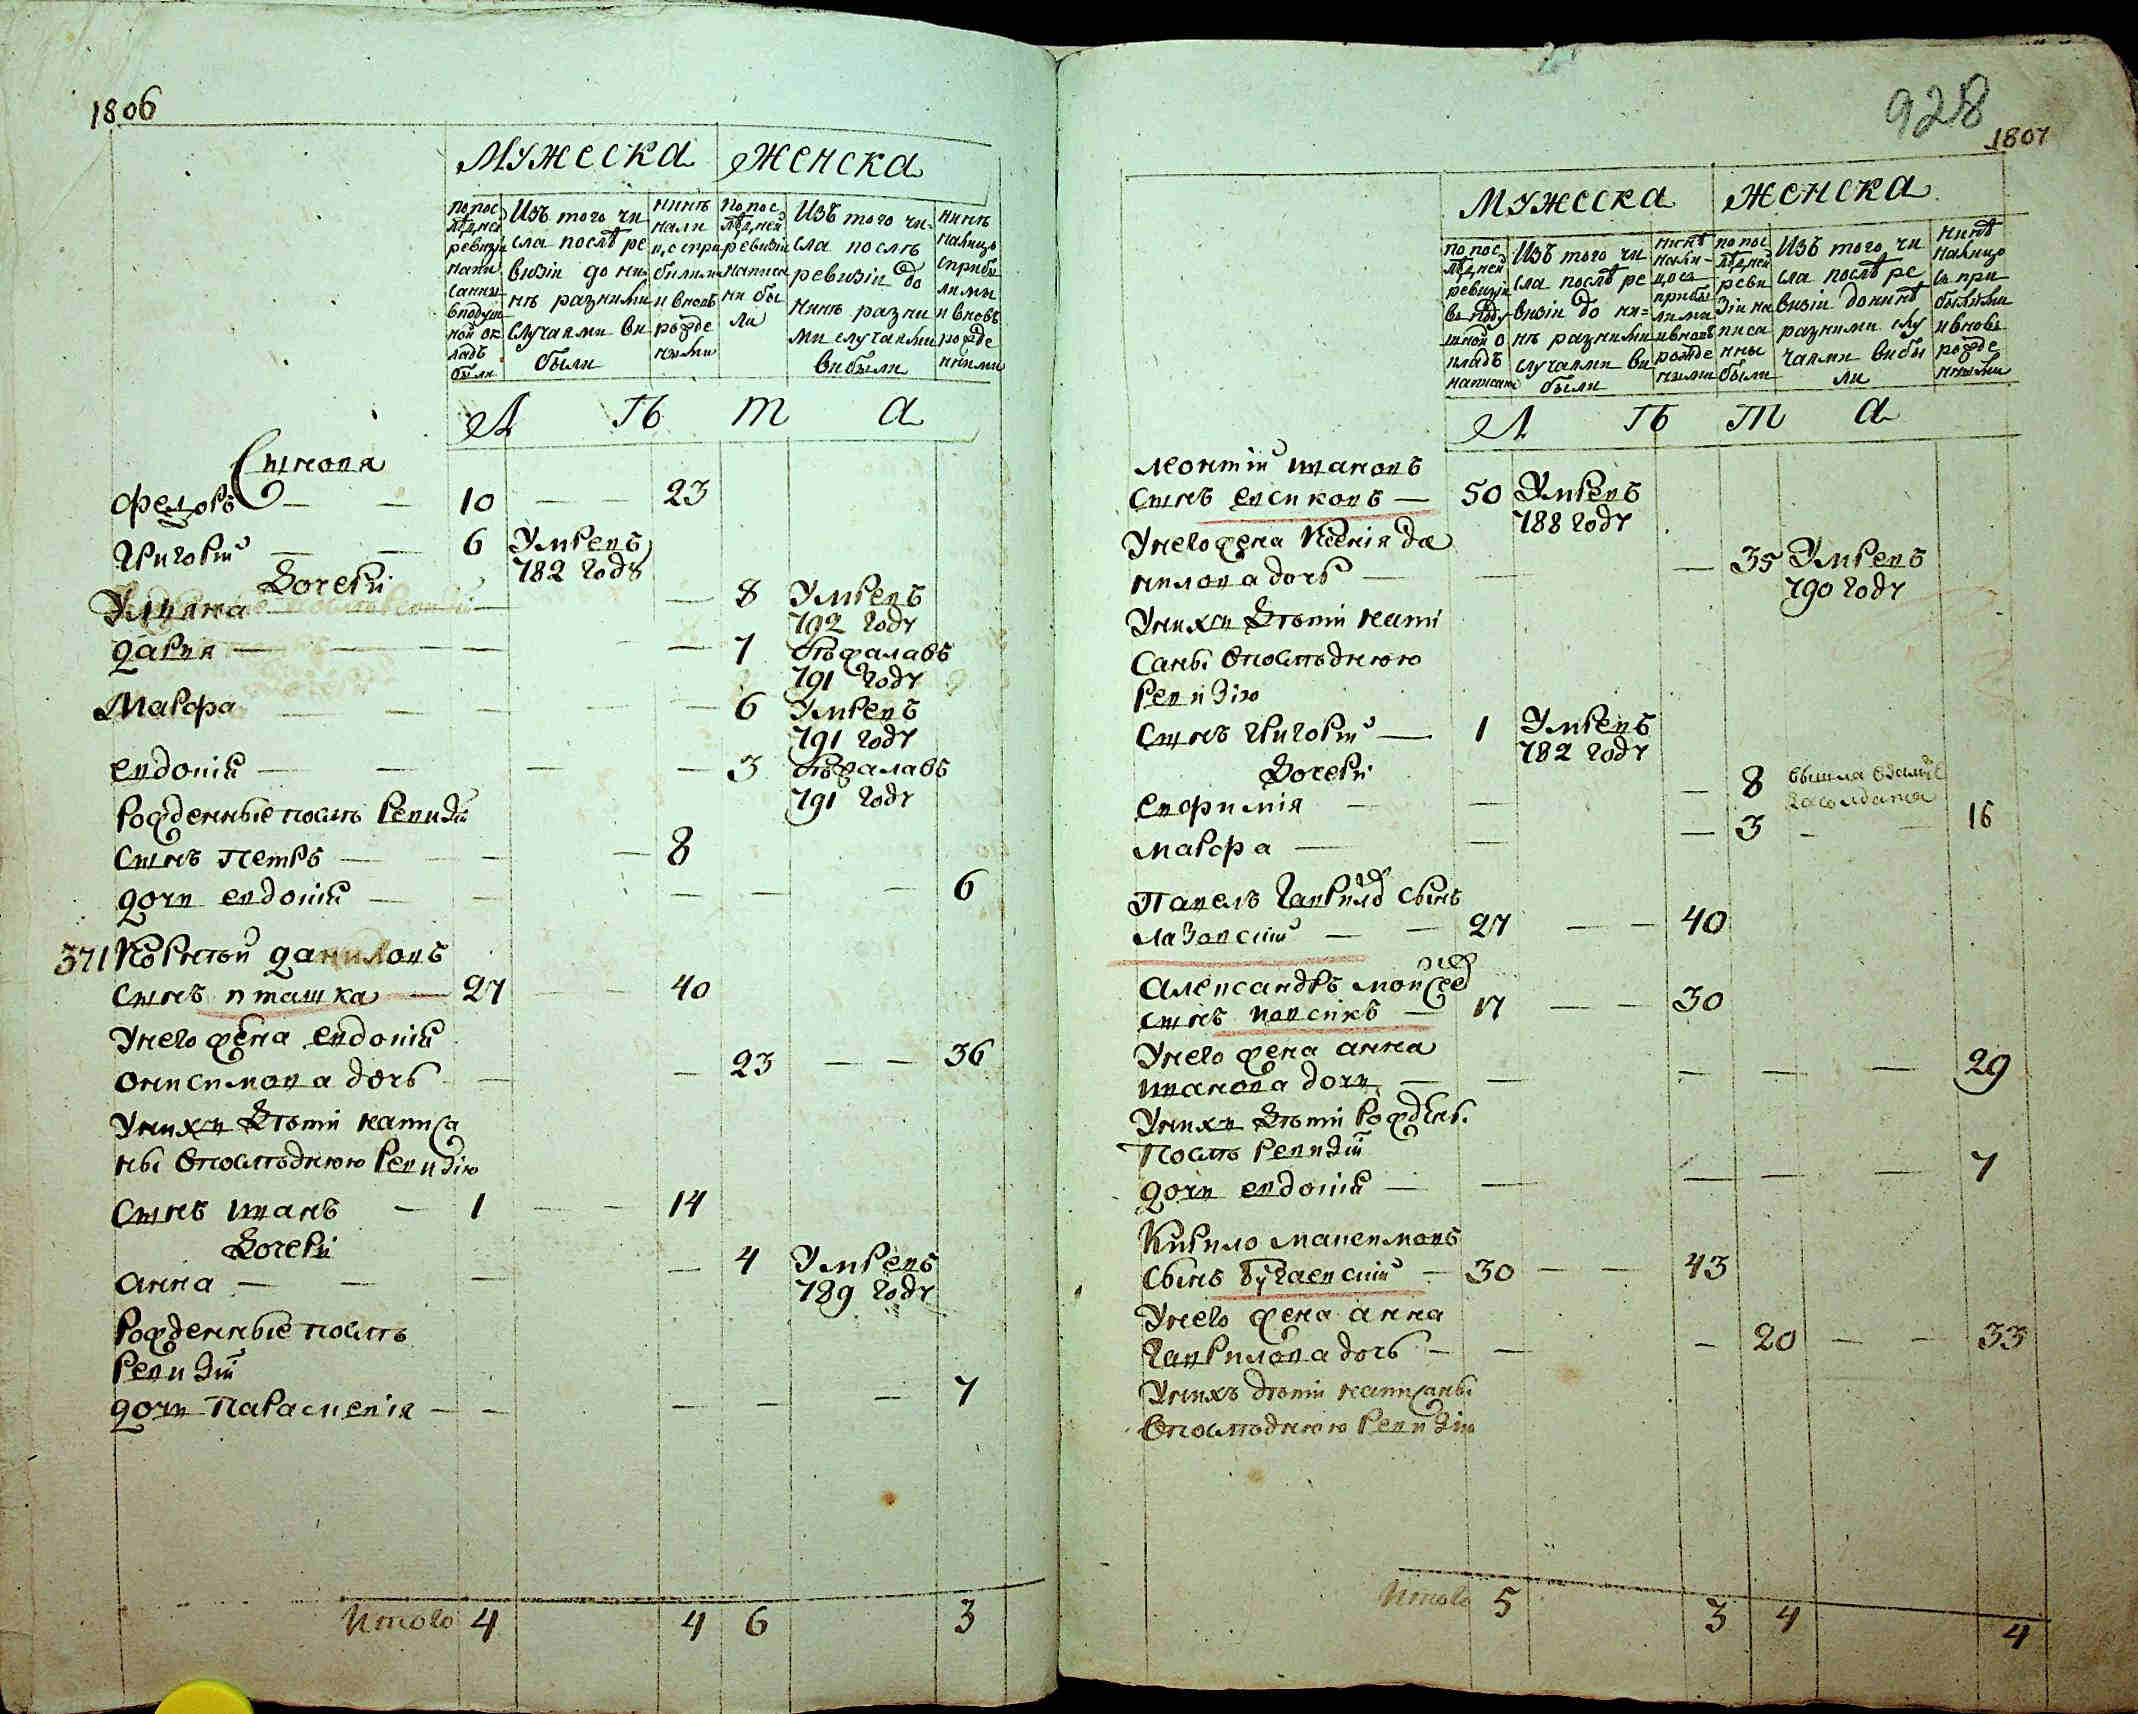 1806
Мужеска Женска
по пос
лѣдней
ревизи
напи
санны
в подуш
ной ок
ладъ
были
Изъ того чи
сла послѣ ре
визіи до ни
нѣ разними
случаями ви
были
нинѣ
нали
ц, с при
былими
и вновь
рожде
ними
по пос
лѣдней
ревизіи
написа
ни бы
ли
Изъ того чи=
сла послѣ
ревизіи до
нинѣ разни
ми случаями
выбыли
нинѣ
налицо
с прибы
лими
и вновь
рожде
нними
Л ѣ т а
Синовя
Федоръ — — 10 — — 23
Григорій — — 6 Умревъ
782 году
Дочери
Улияна — — 8 Умревъ
792 году
Дария — — — — 7 Отъдалавъ
791 году
Марфа — — — — 6 Умревъ
791 году
Евдокія — — — — 3 Отъдалавъ
791 году
Рожденные послѣ ревизіи
Синъ Петръ — — — 8
Дочи Евдокія — — — — — 6
371 Кондратъй Даниловъ
Синъ пташка — 27 — — 40
У него жена Евдокія
Онисимова дочь — — 23 — — 36
У нихъ дѣтіи написа
ны в послѣднюю ревизію
Синъ Иванъ — 1 — — 14
Дочери
Анна — — — — 4 Умревъ
789 году
Рожденные послѣ
ревизіи
Дочи Параскевія — — — — — 7
Итого 4 4 6 3
928
1807
Мужеска Женска
по пос
лѣдней
ревизіи
в поду
шной о
кладъ
написан
Изъ того чи
сла послѣ ре
визіи до ни=
нѣ разними
случаями ви
были
нинѣ
нали-
цо съ
прибы
лими
и вновь
рожде
ними
по пос
лѣдней
реви
зіи на
писа
нны
были
Изъ того чи
сла послѣ ре
визіи до нинѣ
разними слу
чаями вибы
ли
нинѣ
налицо
съ при
былими
и вновь
рожде
нними
Л ѣ т а
Леонтій Ивановъ
Синъ Евсиковъ — 50 Умревъ
788 году
У него жена Ксенія Да
нилова дочь — — — 35 Умревъ
790 году
У нихъ дѣтіи напи
саны в послѣднюю
ревизію
Синъ Григорій — 1 Умревъ
782 году
Дочери
Евфимія — — — 8 вышла
Марфа — — — 3 — — 16
Павелъ Гаврилов сынъ
Лазовскій — — 27 — — 40
Александръ Мойсеев
Синъ Ковсикъ — 17 — — 30
У него жена Анна
Иванова дочи — — — — — 29
У нихъ дѣтіи рожден.
послѣ ревизіи
Дочи Евдокія — — — — — 7
Кирило Максимовъ
Сынъ Бугаевскій — 30 — — 43
У него жена Анна
Гаврилова дочь — — — 20 — — 33
У нихъ дѣтіи написаны
в послѣднюю ревизію
Итого 5 3 4 4